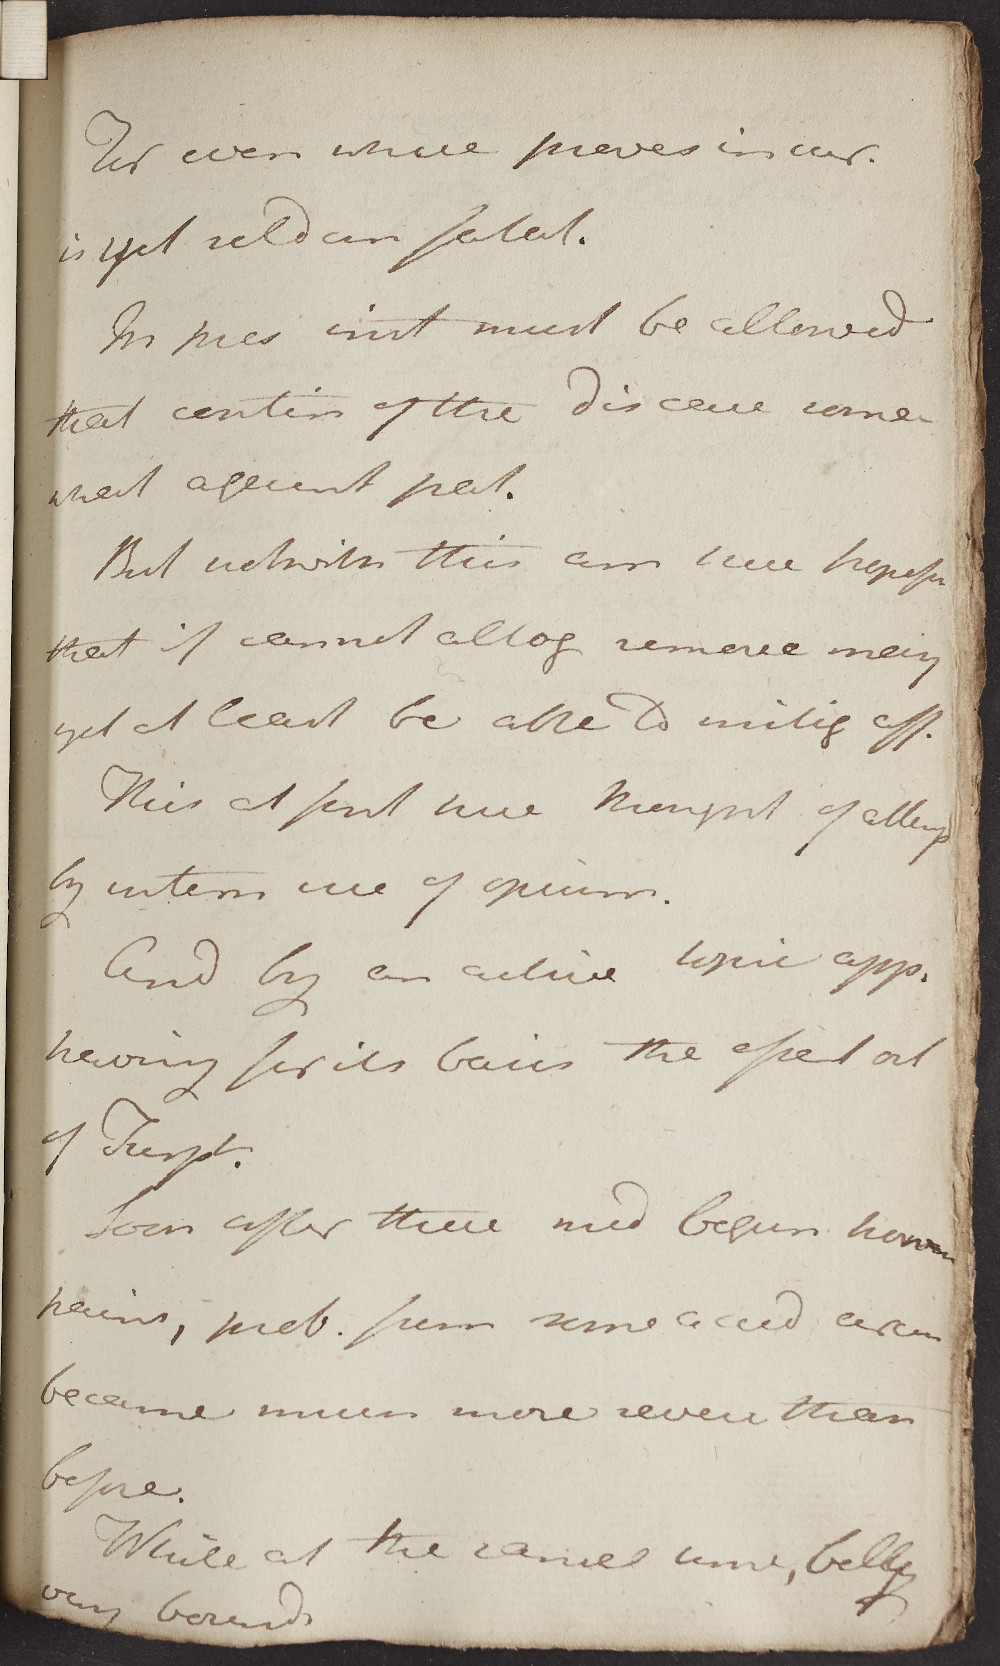 For even where proves incur.
is yet seldom fatal.
In pres inst must be allowed
that contin of the disease some
what against pat.
But notwith this am here hopeful
that if cannot altog remove may
yet at least be able to mitig aff.
This at first here thought of attemp
by intern use of opium.
And by an active topic app.
having for its basis the ol
of Turpt.
Soon after these med begun however
pains, prob. from some accid circum
became much more severe than
before.
While at the same time, belly
very bound